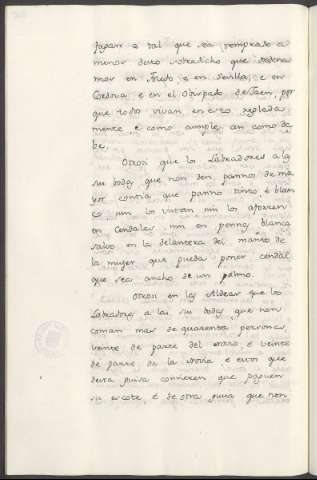 fagan a tal que sea comprado a
menor dela sobredicho que
mar en Toledo, e en Sevilla, e en
Cordova, e en el Obispado de Jaen, por
que todos vivan en esto reglada
mente, e como cumple, en como de
be.
Otrosi que los Labradores a las
sus bodas que non den pannos de ma
yor contia que panno tinto, e blan
co, nin los vistan nin los aforren
en cendales, nin en pennas blancas,
salvo en la delantera del manto de
la muger que pueda poner cendal
que sea ancho de un palmo.
Otrosi en las Aldeas que los
Labradores a las sus bodas que non
coman mas de quarenta personas,
veinte de parte del novio, e veinte
de parte de la novia, e estos que
desta guisa comieren que paguen
su escote, e de otra guisa que non